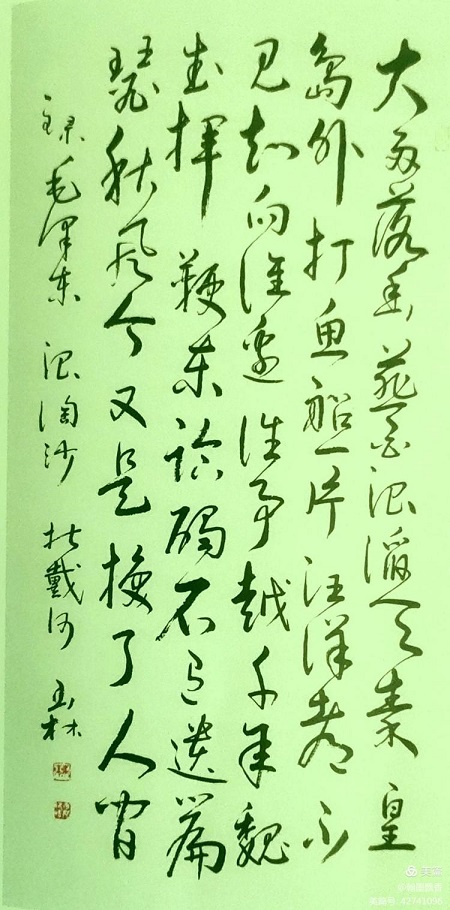 大雨落幽燕白浪滔天秦皇
岛外打鱼船一片汪洋都不
见知向谁边往事越千年魏
武挥鞭东临碣石有遗篇
瑟秋风今又是换了人间
录毛泽东 浪淘沙 北戴河 玉林
美篇
美篇号:42741096